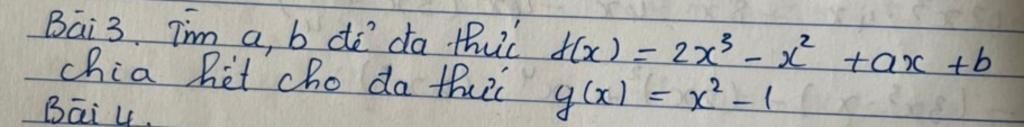 Bài 3. Tìm a, b để đa thức f(x) = 2x³ - x² + ax + b
chia hết cho đa thức g(x) = x² - 1
Bài 4.